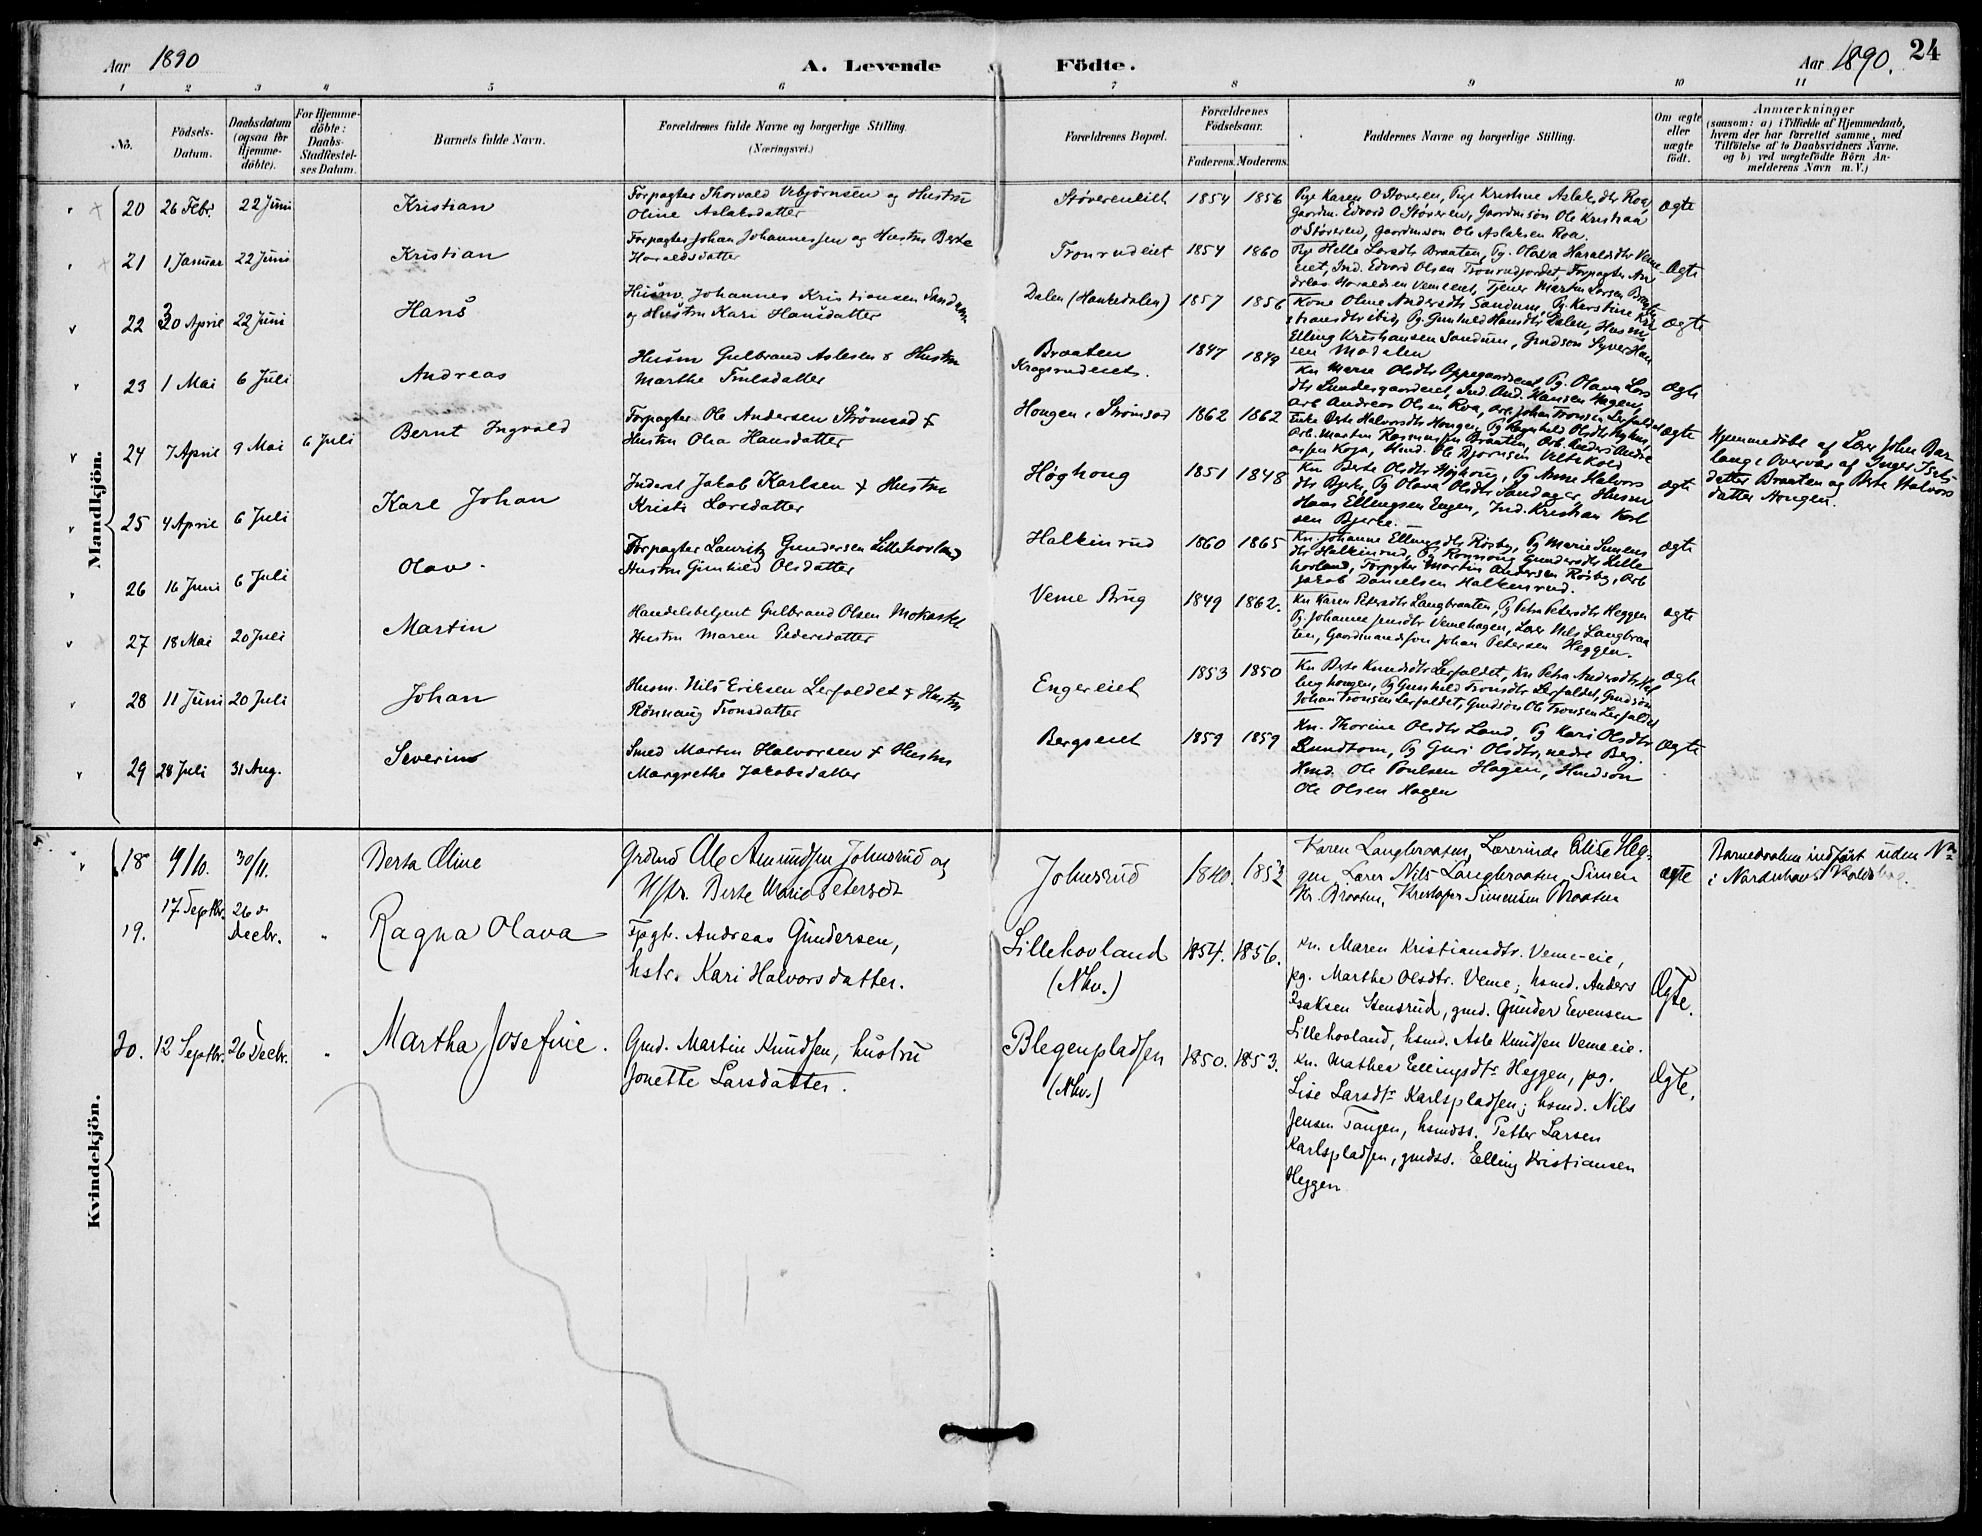 Aar 1890
A. Levende Födte.
Aar 1890. 24
1 2 3 4 5 6 7 8 9 10 11
No.
Födsels-
Datum.
Daabsdatum
(ogsaa for
Hjemme-
döbte).
For Hjemme-
döbte:
Daabs-
Stadfæstel-
ses Datum.
Barnets fulde Navn.
Forældrenes fulde Navne og borgerlige Stilling.
(Næringsvei.)
Forældrenes Bopæl.
Forældrenes
Födselsaar.
Faderens. Moderens.
Faddernes Navne og borgerlige Stilling.
Om ægte
eller
uægte
födt.
Anmærkninger
(saasom: a) i Tilfælde af Hjemmedaab,
hvem der har forrettet samme, med
Tilföielse af to Daabsvidners Navne.
og b) ved uægtefödte Börn An-
melderens Navn m. V.)
Mandkjön.
20 26 Febr. 22 Juni Kristian
Forpagter Thorvald Vebjørnsen og Hustru
Oline Aslaksdatter
Støvereneiet 1854 1856
Pige Karen O Støveren, Pige Kristine Aslaksdtr Roa,
Gaardm. Edvard O Støveren, Gaardmsøn Ole Kristian
O Støveren, Gaardmsøn Ole Aslaksen Roa.
ægte
21 1 Januar 22 Juni Kristian
Forpagter Johan Johannessen og Hustru Berte
Haraldsdatter
Tronrudeiet 1854 1860
Pige Helle Larsdtr Braaten, Pg. Olava Haraldsdtr Veme-
eiet, Ind. Edvard Olsen Tronrudjordet, Forpagter An
dreas Haraldsen Vemeeiet, Tjener Martin Larsen Braaten
ægte
22 30 April 22 Juni Hans
Husm. Johannes Kristiansen Sandum
og Hustru Kari Hansdatter
Dalen (Hankedalen) 1857 1856
Kone Oline Andersdtr Sandum, Pg Kerstine Kri
stiansdtr ibid, Pg. Gunhild Hansdtr Dalen, Husm
Elling Kristiansen Sandum, Gmdsøn Syver Han
sen Modalen
ægte
23 1 Mai 6 Juli Andreas
Husm Gulbrand Aslesen & Hustru
Marthe Truelsdatter
Braaten
Kragsrudeiet. 1847 1849
Kn Marie Olsdtr Oppegaardeiet, Pg. Olava Lars
dtr Lundesgaardeiet, Ind. And. Hansen Hagen,
Arb Andreas Olsen Roa, Arb. Johan Tronsen Lerfaldet
ægte
24 7 April 9 Mai 6 Juli Bernt Ingvald
Forpagter Ole Andersen Strømsød &
Hustru Olea Hansdatter
Hougen, Strømsød 1862 1862
Enke Berte Halvorsdtr Hougen, Pg Ragnhild Olsdtr Myhre,
Arb. Martin Rasmussen Braaten, Arb. Anders Andre
assen Koya, Hmd. Ole Bjørnsen Veltekold
ægte
Hjemmedøbt af Lær John Bar
lang i Overvær af Inger Isaks
datter Braaten og Berte Halvors
datter Hougen.
25 4 April 6 Juli Karl Johan
Inderst Jakob Karlsen & Hustru
Kristi Larsdatter
Høghoug 1851 1848
Kn Berte Olsdtr Høghoug, Pg Anne Halvors
dtr Bjerke, Pg Olava Olsdtr Sandager, Husm
Hans Ellingsen Engen, Ind. Kristian Karl
sen Bjerke.
ægte
26 16 Juni 6 Juli Olav.
Forpagter Lauritz Gundersen Lillehovland
Hustru Gunhild Olsdatter
Halkinrud 1860 1865
Kn. Johanne Ellingsdtr Røsby, Pg Marie Simens
dtr Halkinrud, Pg Rønnaug Gundersdtr Lille
hovland, Forpagter Martin Andersen Røsby, Arb
Jakob Danielsen Halkinrud.
ægte
27 18 Mai 20 Juli Martin
Handelsbetjent Gulbrand Olsen Mokastet
Hustru Maren Pedersdatter
Veme Brug 1849 1862.
Kn Karen Petersdtr Langbraaten, Pg Petra Petersdtr Heggen
Pg. Johanne Jensdtr Vemehagen, Lær Nils Langbraa
ten, Gaardmandssøn Johan Petersen Heggen.
ægte
28 11 Juni 20 Juli Johan
Husm. Nils Eriksen Lerfaldet & Hustru
Rønnaug Tronsdatter
Engereiet 1853 1850
Kn Berte Knudsdtr Lerfaldet, Kn Petra Andersdtr
houghougen, Pg Gunhild Tronsdtr Lerfaldet, Gmdsøn
Johan Tronsen Lerfaldet, Gmdsøn Ole Tronsen Lerfaldet
ægte
29 28 Juli 31 Aug. Severin
Smed Martin Halvorsen & Hustru
Margrethe Jakobsdatter
Bergseiet 1859 1859
Kn. Thorine Olsdtr Land, Pg Kari Olsdtr
Rundtom, Pg Guri Olsdtr, nedre Berg.
Hmd. Ole Poulsen Hagen, Hmdsøn
Ole Olsen Hagen
ægte
Kvindekjön.
18 9/10. 30/11. Berta Oline
Grdmd Ole Amundsen Johnsrud og
Hstr. Berte Marie Petersdt
Johnsrud 1840. 1852
Karen Langbraaten, Lærerinde Elise Heg-
gen, Lærer Nils Langbraaten, Simen
Kr. Braaten, Kristofer Simensen Braaten
ægte
Barnedaaben indført uden No
i Norderhovs Kaldsbog.
19. 17 Septbr. 26 de Decbr. " Ragna Olava
Fpgtr. Andreas Gundersen,
hstr. Kari Halvorsdatter.
Lillehovland
(Nhv.) 1854. 1856.
Kn. Maren Kristiansdtr. Veme-eie,
pg. Marthe Olsdtr. Veme; hsmd. Anders
Isaksen Stensrud, gmd. Gunder Evensen
Lillehovland, hsmd. Asle Knudsen Veme-eie.
Ægte.
20. 12 Septbr. 26 Decbr. " Martha Josefine.
Gmd. Martin Knudsen, hustru
Jonette Larsdatter.
Blegenpladsen
(Nhv.) 1850. 1853.
Kn. Mathea Ellingsdtr Heggen, pg.
Lise Larsdtr Karlspladsen; hsmd. Nils
Jensen Tangen, hsmdss. Petter Larsen
Karlspladsen, gmdss. Elling Kristiansen
Heggen
Ægte.